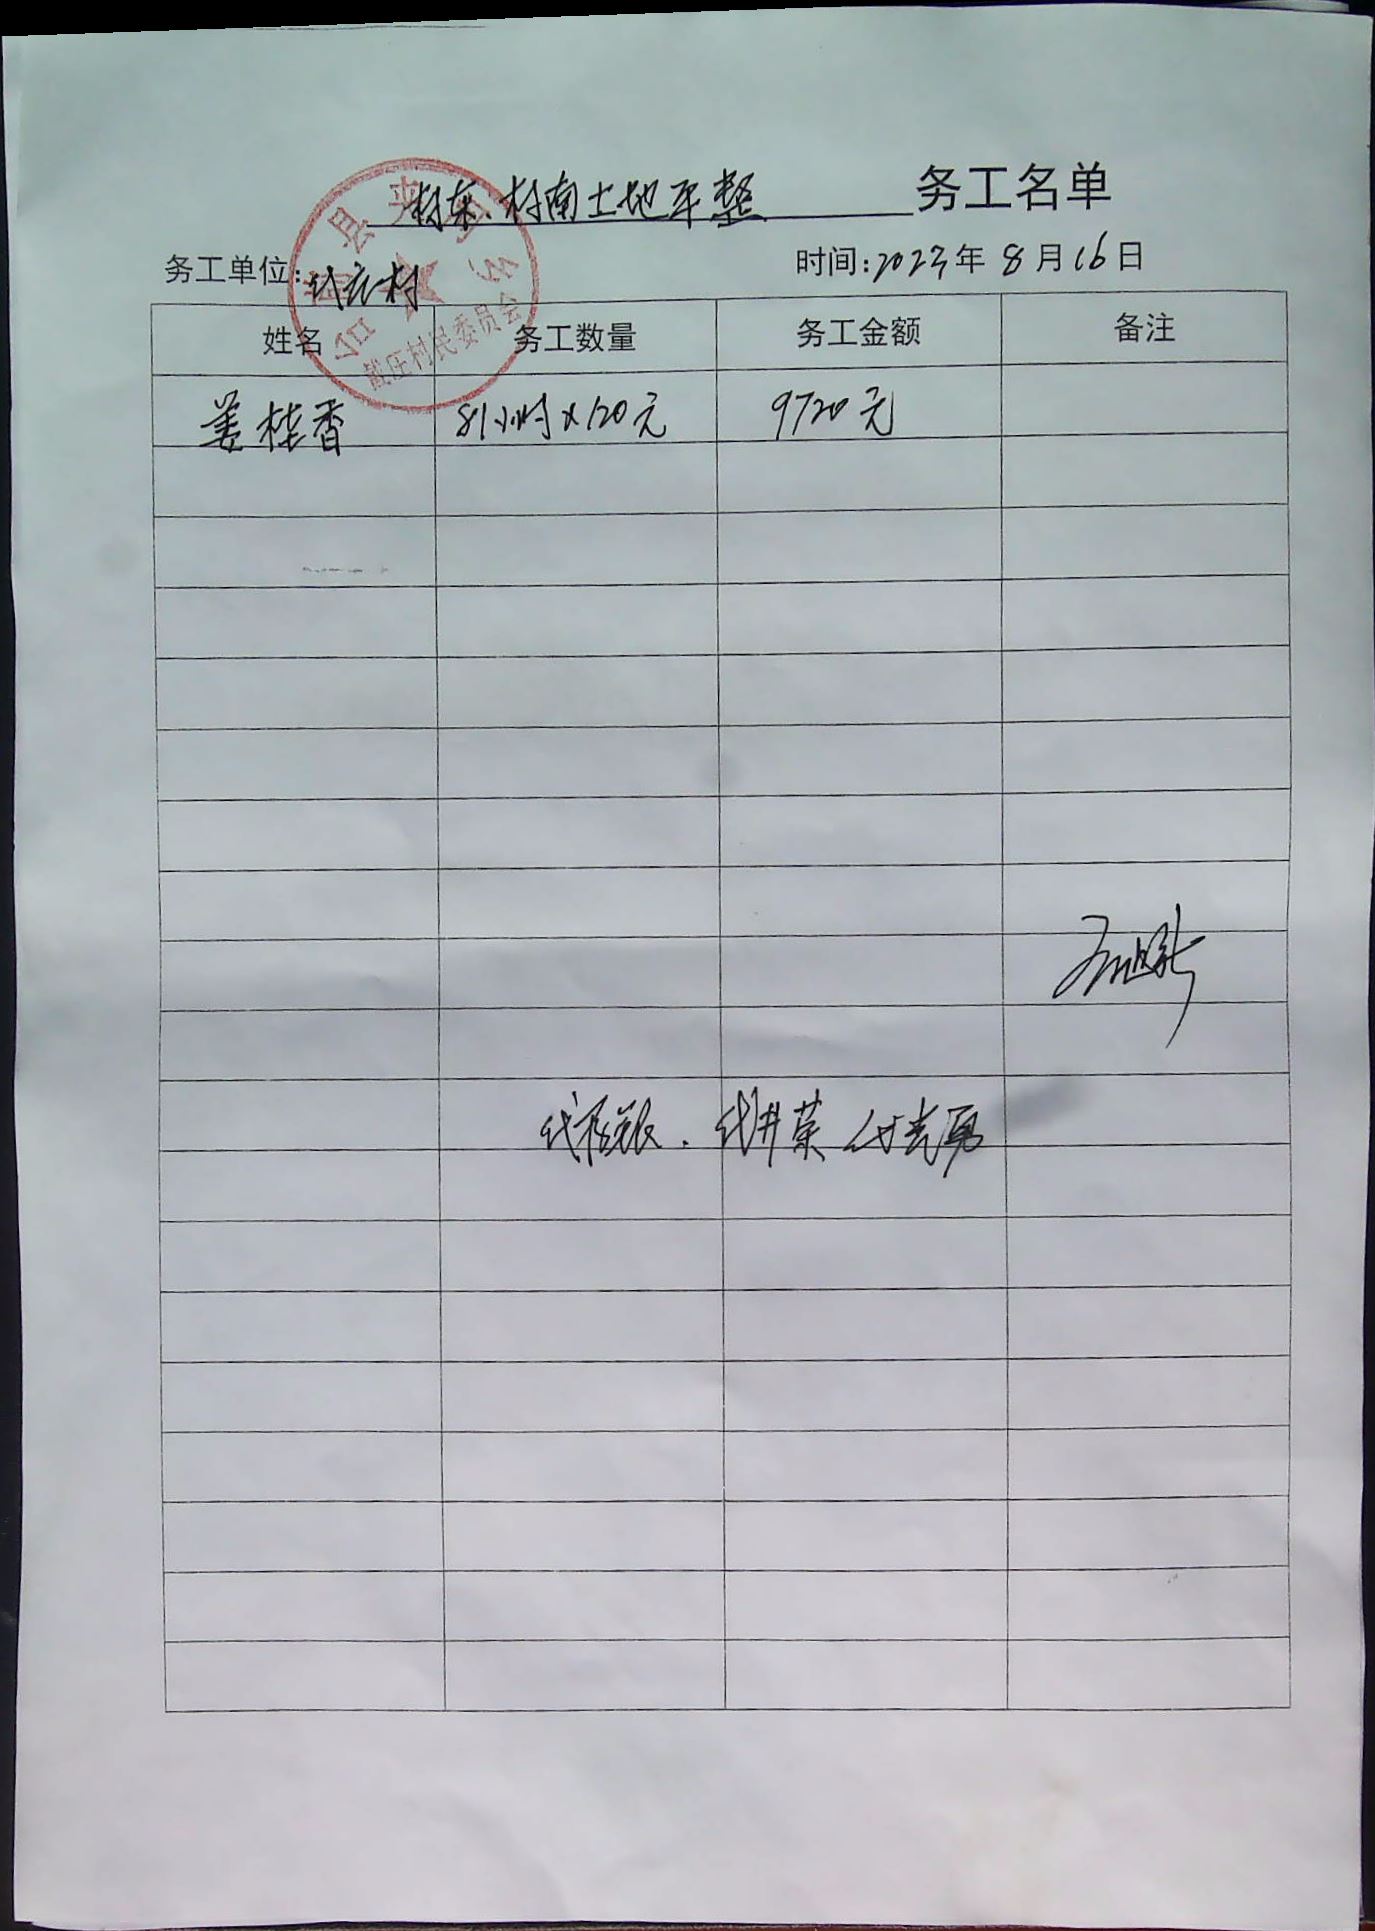 村东、村南土地平整 务工名单
务工单位:代庄村 时间:2023年8月16日
姓名 务工数量 务工金额 备注
姜桂香 81小时×120元 9720元
代井荣 付克勇
戴庄村民委员会